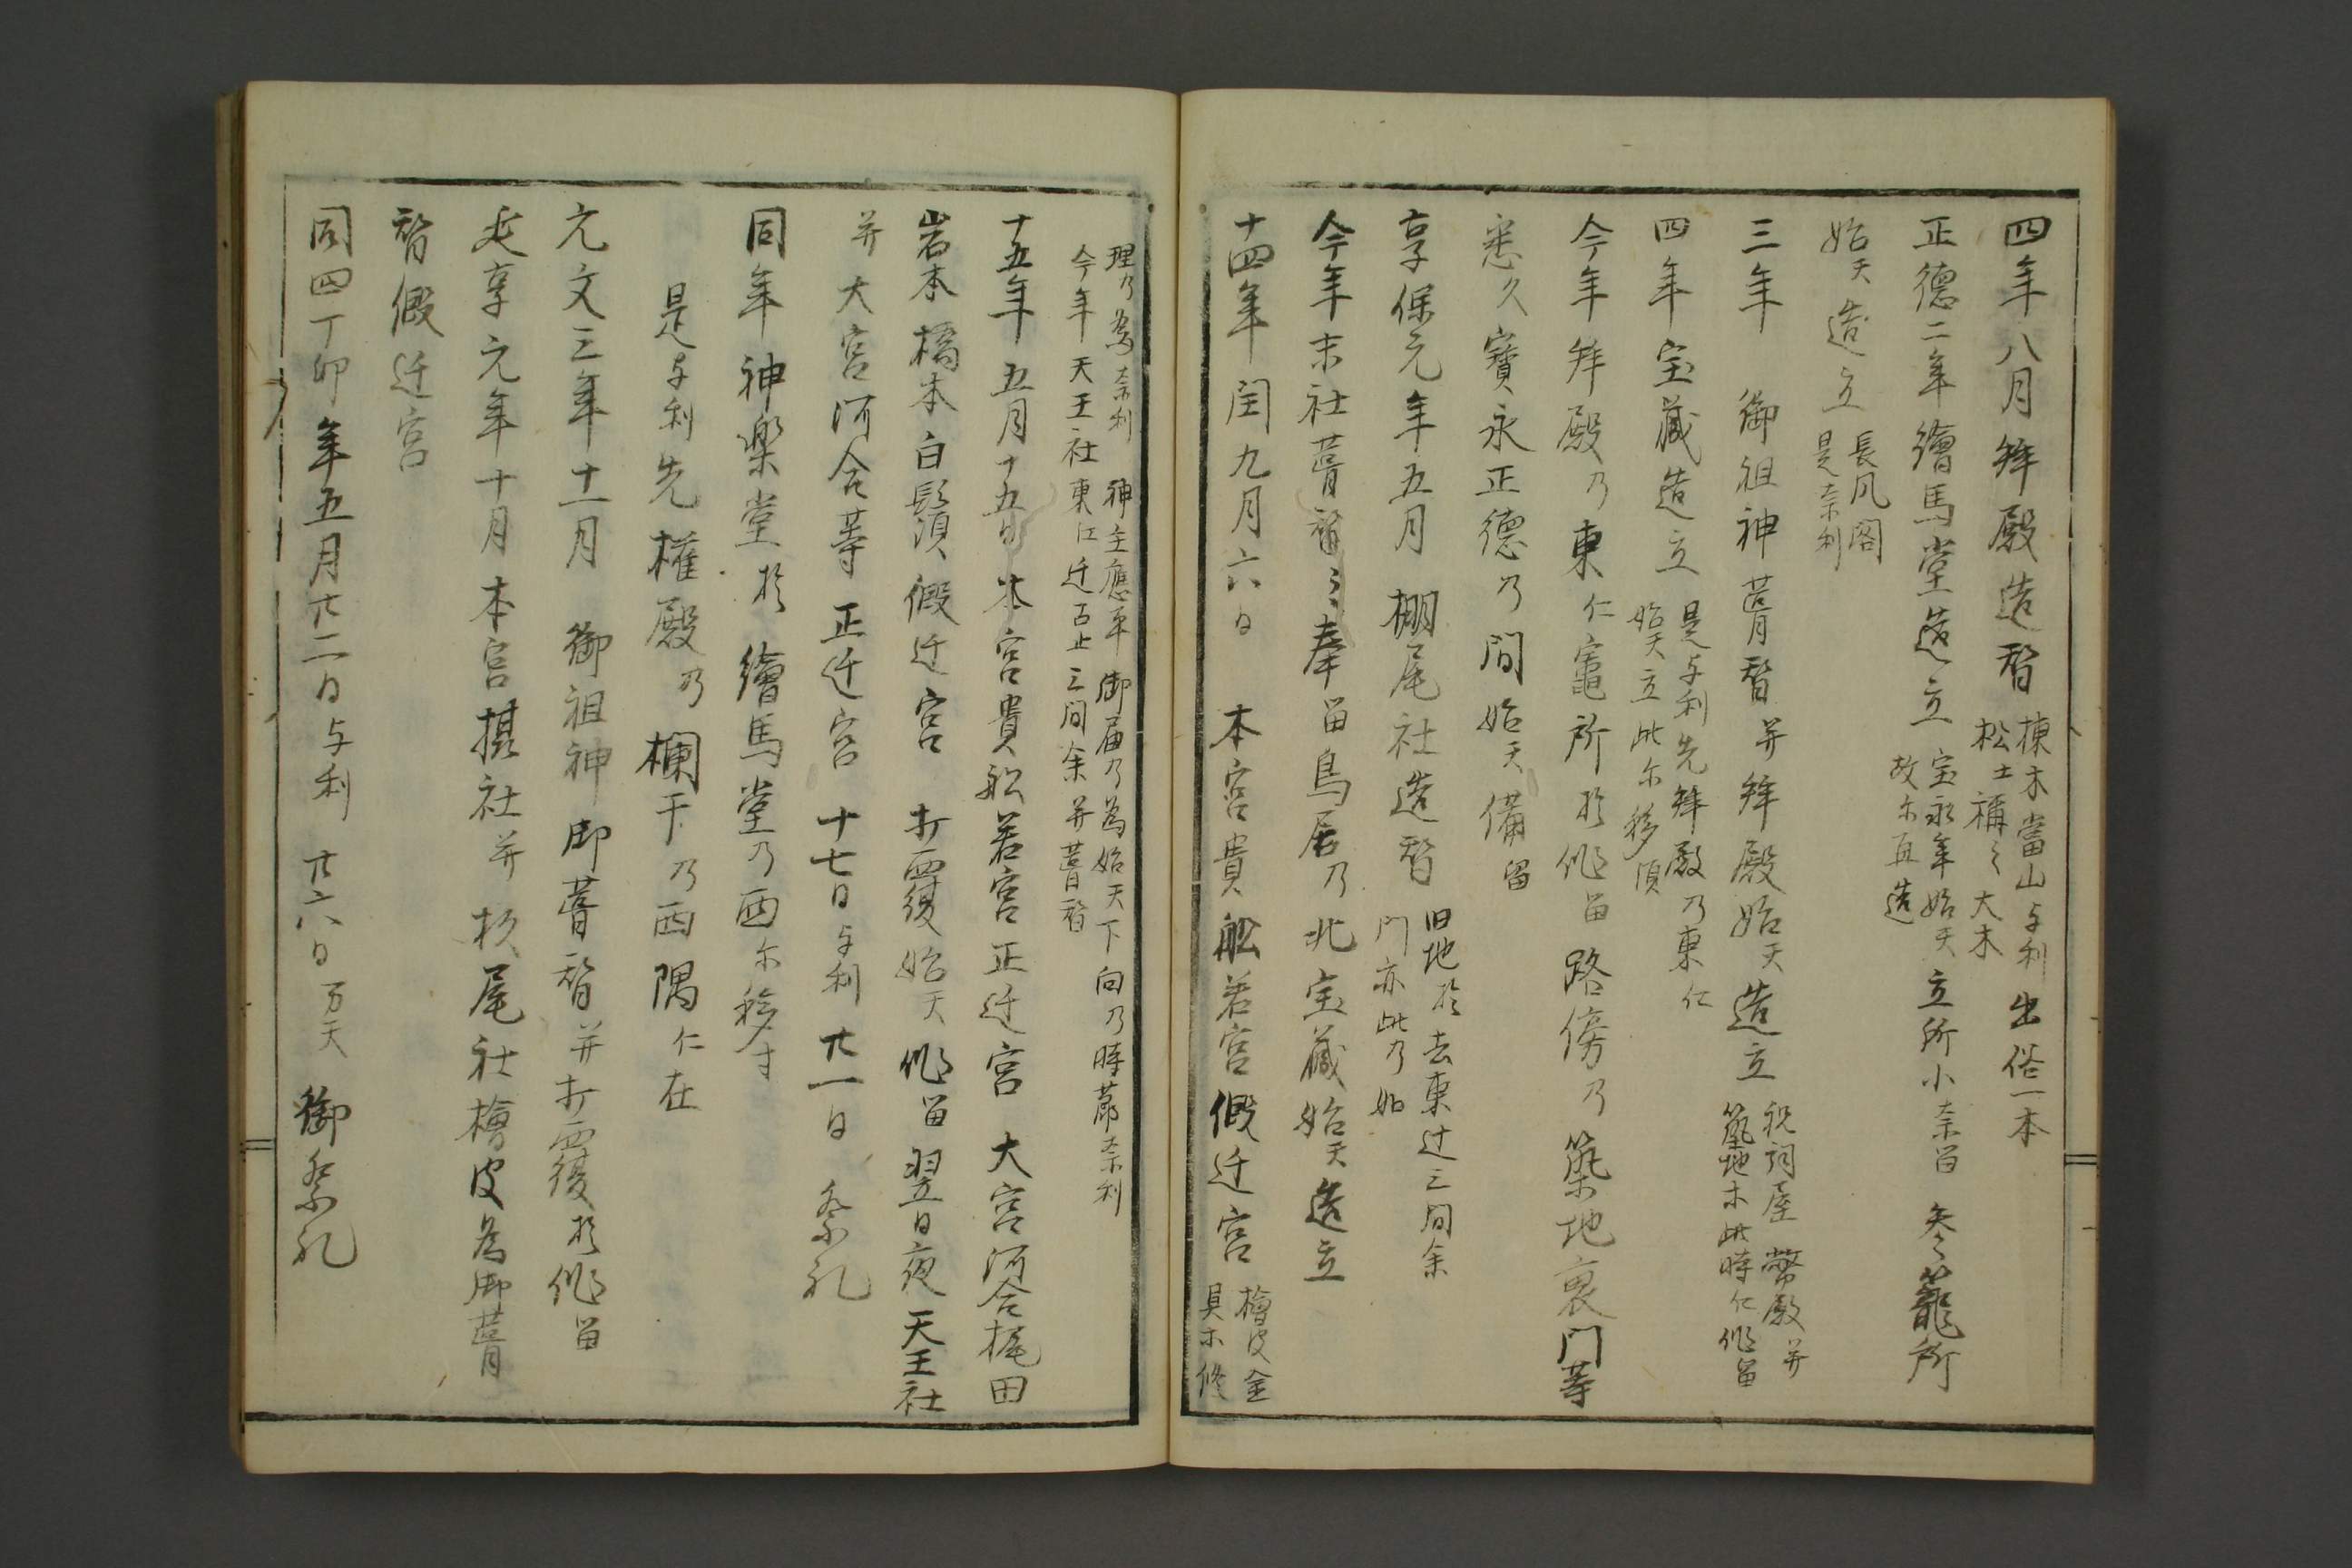 四年八月拝殿造替 棟木當山与利出俗一本
松士稱之大木
正德二年繪馬堂造立 宝永年始天立所小奈留 参籠所
故尓再造
始天造立 長风阁
是奈利
三年 御祖神葺替并拝殿始天造立 祝詞屋幣殿并
築地木此時仁修留
四年宝藏造立 是与利先拝殿乃東仁
始天立此尓移須
今年拝殿乃東仁竈所於修留路傍乃築地裏门等
悉久寶永正德乃间始天備留
享保元年五月棚尾社造替 旧地於去東辻三间余
门亦此乃如
今年末社葺替之奉留鳥居乃北宝藏始天造立
十四年闰九月六日 本宮貴舩若宮假迁宮 檜皮金
具木修
理乃為奈利 神主應平御届乃為始天下向乃時節奈利
今年天王社東江迁古止三间余并葺替
十五年五月十五日本宮貴舩若宮正迁宮 大宮河合梶田
岩本橋本白鬚假迁宮 打覆始天修留翌日夜天王社
并大宮河合等正迁宮 十七日与利廿一日祭礼
同年神楽堂於繪馬堂乃西尓移寸
是与利先權殿乃欄干乃西隅仁在
元文三年十一月 御祖神御葺替并打覆於修留
延享元年十月本宮摂社并杉尾社檜皮為御葺
替假迁宮
同四丁卯年五月廿二日与利 廿六日万天 御祭礼